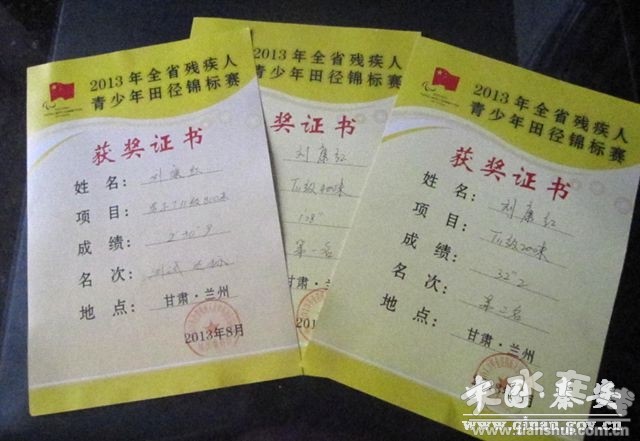 2013年全省残疾人
青少年田径锦标赛
获奖证书
姓名：刘康红
项目：
成绩：2'40"9
名次：
地点：甘肃·兰州
2013年8月
2013年全省残疾人
青少年田径锦标赛
奖证书
刘康红
T11级400米
1'28"
第一名
甘肃·兰州
2013年全省残疾人
青少年田径锦标赛
获奖证书
姓名：刘康红
项目：T11级200米
成绩：32"2
名次：第二名
地点：甘肃·兰州
秦安
www.qinan.gov.cn
www.tianshui.com.cn